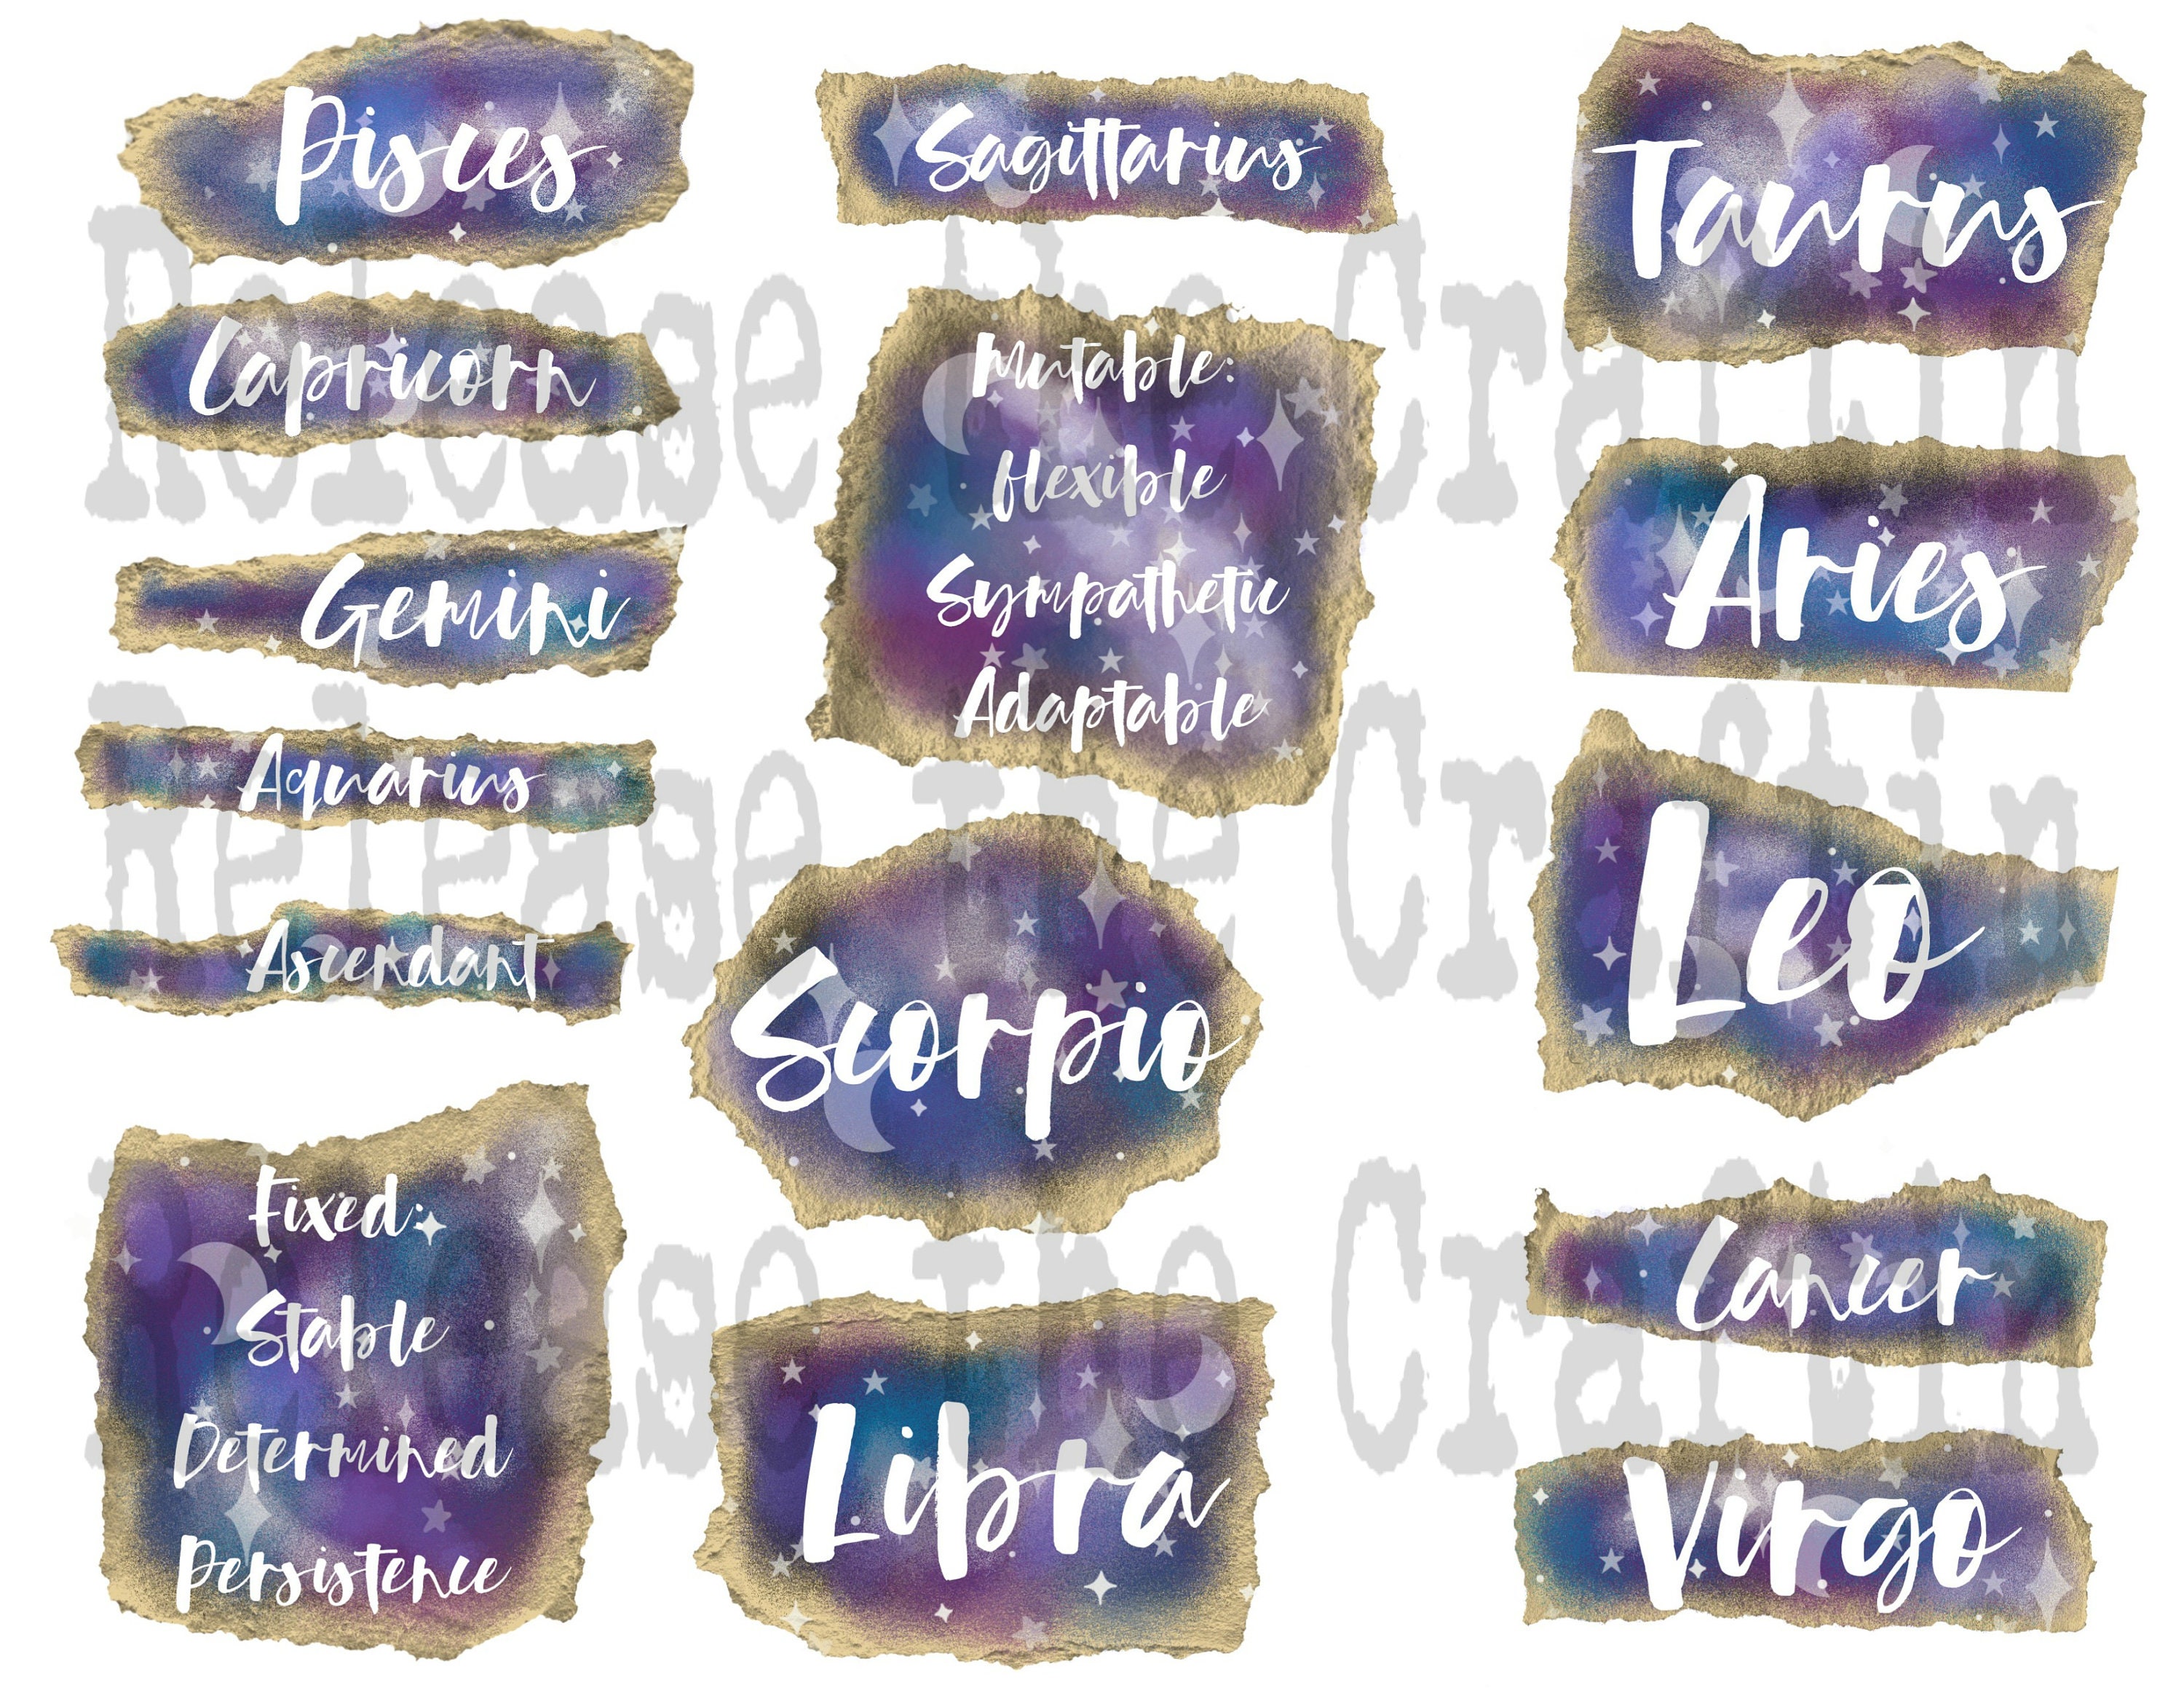 Pisces
Capricorn
Gemini
Aquarius
Ascendant
Fixed:
Stable
Determined
Persistence
Sagittarius
Mutable:
flexible
Sympathetic
Adaptable
Scorpio
Libra
Taurus
Aries
Leo
Cancer
Virgo
Release the Craftin
Release the Craftin
Release the Craftin